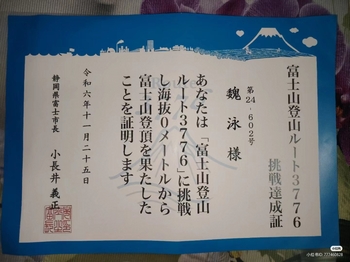 富士山登山ルート3776
挑戦達成証
第24-602号
魏 泳 様
あなたは「富士山登山
ルート3776」に挑戦
し海抜0メートルから
富士山登頂を果たした
ことを証明します
令和六年十一月二十五日
静岡県富士市長 小長井 義正